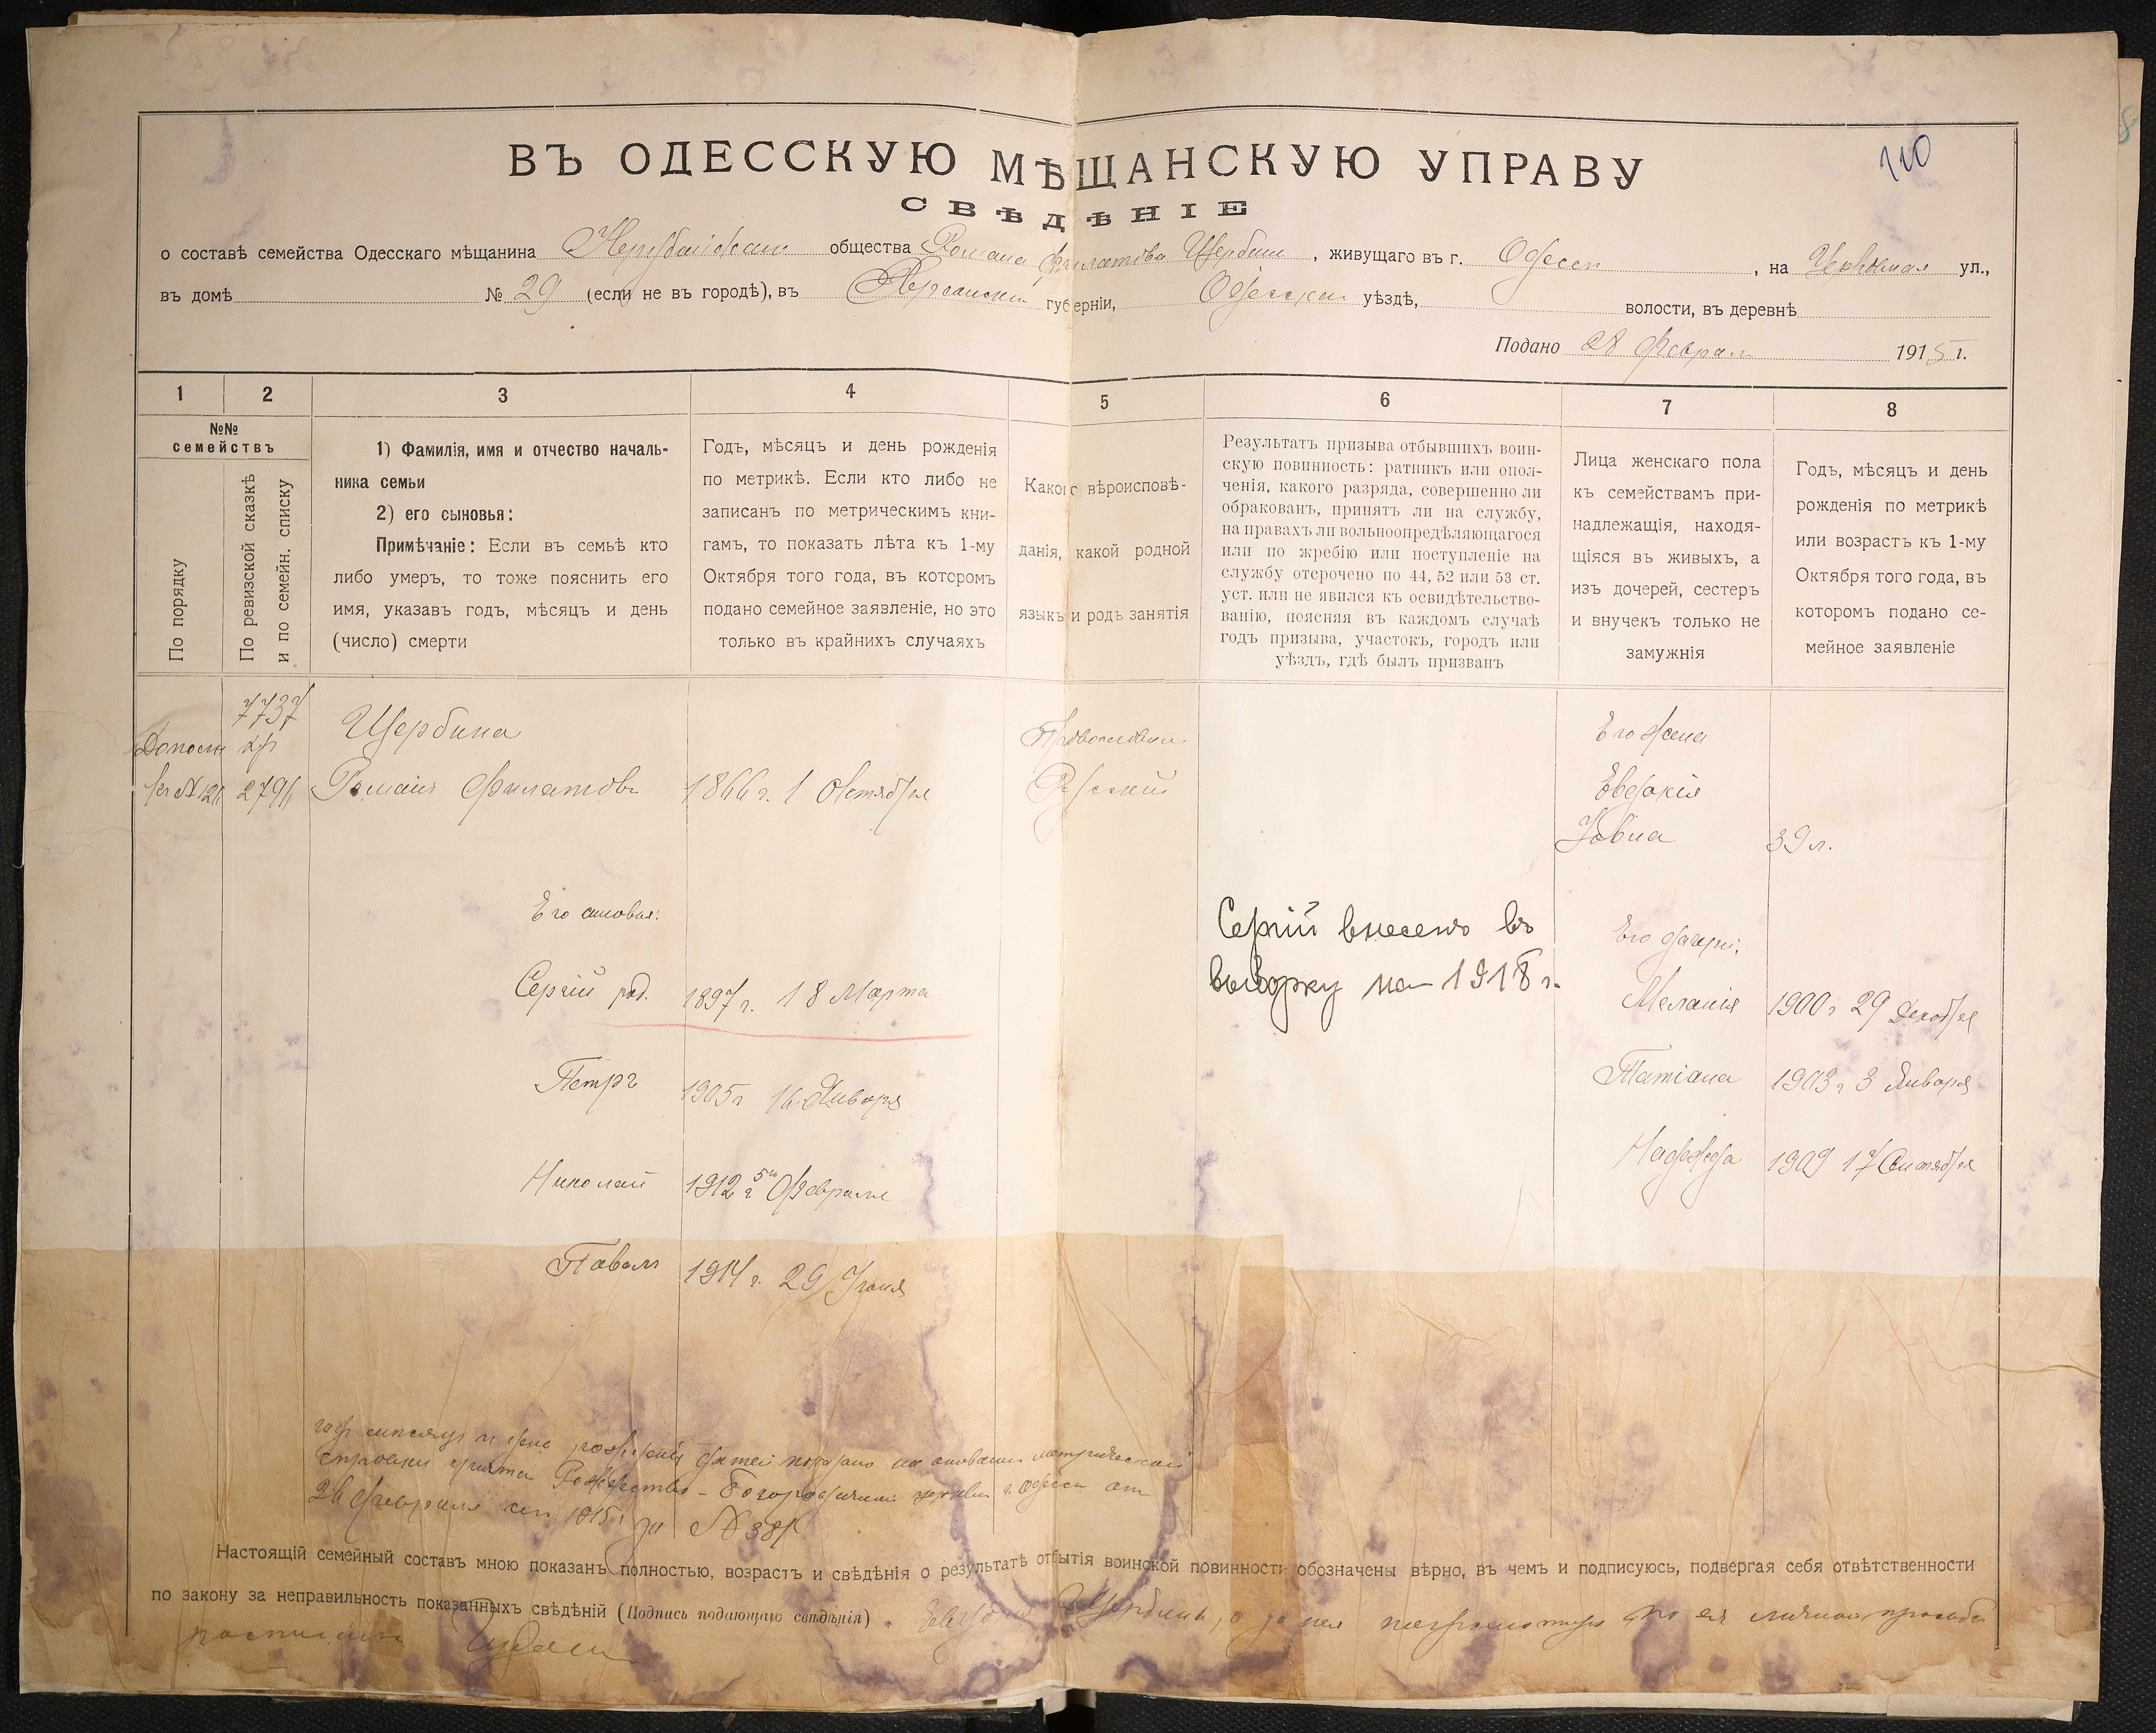 110
ВЪ ОДЕССКУЮ МѢЩАНСКУЮ УПРАВУ
СВѢДѢНІЕ
о составѣ семейства Одесскаго мѣщанина Нерубайскаго общества Романа Филатова Щербины, живущаго въ г. Одессѣ, на ул.,
въ домѣ № 29 (если не въ городѣ), въ Херсонской губерніи, Одесскаго уѣздѣ, волости, въ деревнѣ
Подано 28 Февраля 1915 г.
1 2 3 4 5 6 7 8
№№
семействъ
По порядку
По ревизской сказкѣ
и по семейн. списку
1) Фамилія, имя и отчество началь-
ника семьи
2) его сыновья:
Примѣчаніе: Если въ семьѣ кто
либо умеръ, то тоже пояснить его
имя, указавъ годъ, мѣсяцъ и день
(число) смерти
Годъ, мѣсяцъ и день рожденія
по метрикѣ. Если кто либо не
записанъ по метрическимъ кни-
гамъ, то показать лѣта къ 1-му
Октября того года, въ которомъ
подано семейное заявленіе, но это
только въ крайнихъ случаяхъ
Какого вѣроисповѣ-
данія, какой родной
языкъ и родъ занятія
Результатъ призыва отбывшихъ воин-
скую повинность: ратникъ или опол-
ченія, какого разряда, совершенно ли
обракованъ, принятъ ли на службу,
на правахъ ли вольноопредѣляющагося
или по жребію или поступленіе на
службу отсрочено по 44, 52 или 53 ст.
уст. или не явился къ освидѣтельство-
ванію, поясняя въ каждомъ случаѣ
годъ призыва, участокъ, городъ или
уѣздъ, гдѣ былъ призванъ
Лица женскаго пола
къ семействамъ при-
надлежащія, находя-
щіяся въ живыхъ, а
изъ дочерей, сестеръ
и внучекъ только не
замужнія
Годъ, мѣсяцъ и день
рожденія по метрикѣ
или возрастъ къ 1-му
Октября того года, въ
которомъ подано се-
мейное заявленіе
7737
Щербина
Православн.
Его жена
Романъ Филатовъ 1866 г. 1 Октября
Русскій
Евдокія
39 л.
Его сыновья:
Сергій внесенъ въ
выборку на 1918 г.
Его дочери:
Сергій род. 1897 г. 18 Марта
Меланія 1900 г 29 Декабря
Петръ 1905 г 16 Января
Татіана 1903 г 3 Января
Николай 1912 г 5го Февраля
Надежда 1909 17 Сентября
Павелъ 1914 г. 29 Іюня
годъ мѣсяцъ и день рожденія дѣтей показано на основаніи метрической
справки причта Рождество-Богородичной церкви г. Одессы от
26 февраля сего 1915 г. за №
Настоящій семейный составъ мною показанъ полностью, возрастъ и свѣдѣнія о результатѣ отбытія воинской повинности обозначены вѣрно, въ чемъ и подписуюсь, подвергая себя отвѣтственности
по закону за неправильность показанныхъ свѣдѣній (Подпись подающаго свѣдѣнія). Щербина, а за нея неграмотную по ея личной просьбѣ